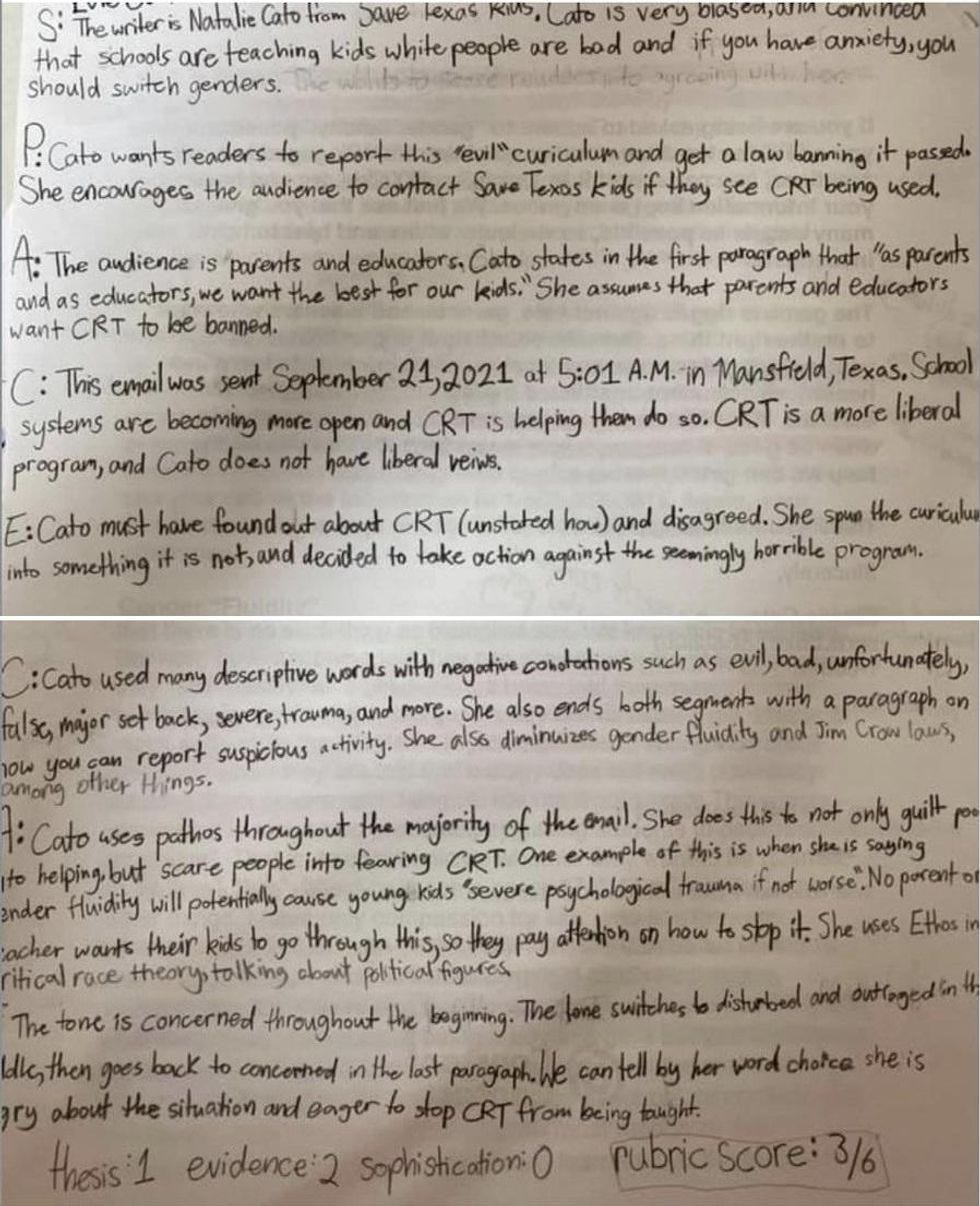 S: The writer is Natalie Cato from Save Texas Kids. Cato is very biased, and convinced
that schools are teaching kids white people are bad and if you have anxiety, you
should switch genders.
P: Cato wants readers to report this "evil" curiculum and get a law banning it passed.
She encourages the audience to contact Save Texas kids if they see CRT being used.
A: The audience is parents and educators. Cato states in the first paragraph that "as parents
and as educators, we want the best for our kids." She assumes that parents and educators
want CRT to be banned.
C: This email was sent September 21, 2021 at 5:01 A.M. in Mansfield, Texas. School
systems are becoming more open and CRT is helping them do so. CRT is a more liberal
program, and Cato does not have liberal veiws.
E: Cato must have found out about CRT (unstated how) and disagreed. She spun the curiculum
into something it is not, and decided to take action against the seemingly horrible program.
C: Cato used many descriptive words with negative conotations such as evil, bad, unfortunately,
false, major set back, severe, trauma, and more. She also ends both segments with a paragraph on
how you can report suspicious activity. She also diminuizes gender fluidity and Jim Crow laws,
among other things.
A: Cato uses pathos throughout the majority of the email. She does this to not only guilt peo
nto helping, but scare people into fearing CRT. One example of this is when she is saying
ender fluidity will potentially cause young kids "severe psychological trauma if not worse". No parent or
eacher wants their kids to go through this, so they pay attention on how to stop it. She uses Ethos in
ritical race theory, talking about political figures.
The tone is concerned throughout the beginning. The tone switches to disturbed and outraged in th
ddle, then goes back to concerned in the last paragraph. We can tell by her word choice she is
gry about the situation and eager to stop CRT from being taught.
thesis: 1 evidence: 2 sophistication: 0 rubric score: 3/6